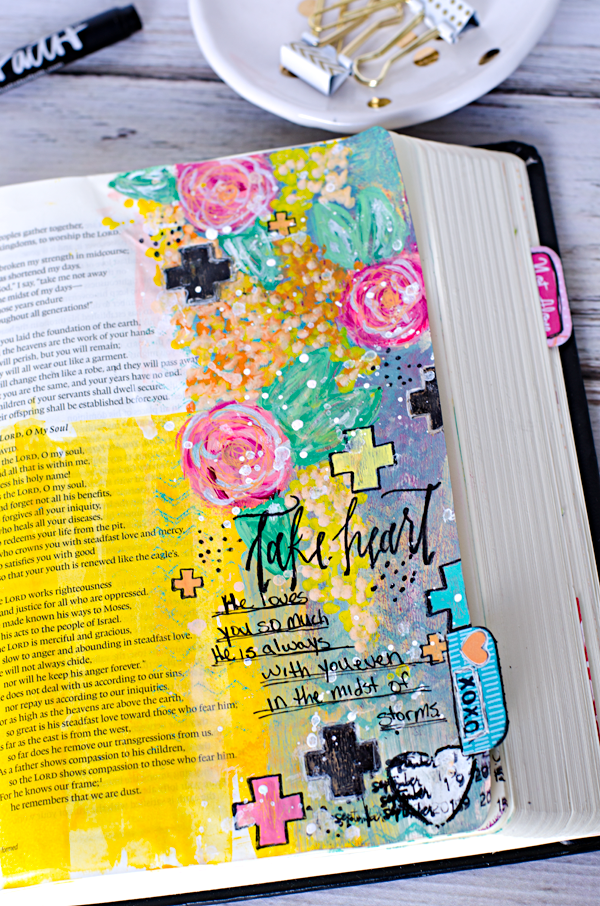 Faith
peoples gather together,
kingdoms, to worship the LORD.
broken my strength in midcourse;
has shortened my days.
God," I say, "take me not away
the midst of my days—
whose years endure
throughout all generations!"
you laid the foundation of the earth,
the heavens are the work of your hands.
will perish, but you will remain;
they will all wear out like a garment.
will change them like a robe, and they will pass away,
you are the same, and your years have no end.
children of your servants shall dwell secure;
their offspring shall be established before you.
LORD, O My Soul
DAVID.
the LORD, O my soul,
and all that is within me,
bless his holy name!
the LORD, O my soul,
and forget not all his benefits,
forgives all your iniquity,
who heals all your diseases,
redeems your life from the pit,
who crowns you with steadfast love and mercy,
satisfies you with good
so that your youth is renewed like the eagle's.
LORD works righteousness
and justice for all who are oppressed.
made known his ways to Moses,
his acts to the people of Israel.
LORD is merciful and gracious,
slow to anger and abounding in steadfast love.
He will not always chide,
nor will he keep his anger forever.
He does not deal with us according to our sins,
nor repay us according to our iniquities.
For as high as the heavens are above the earth,
so great is his steadfast love toward those who fear him;
as far as the east is from the west,
so far does he remove our transgressions from us.
As a father shows compassion to his children,
so the LORD shows compassion to those who fear him.
For he knows our frame;
he remembers that we are dust.
Take heart
He loves
you so much
He is always
with you even
in the midst of
storms
XOXO
september
september